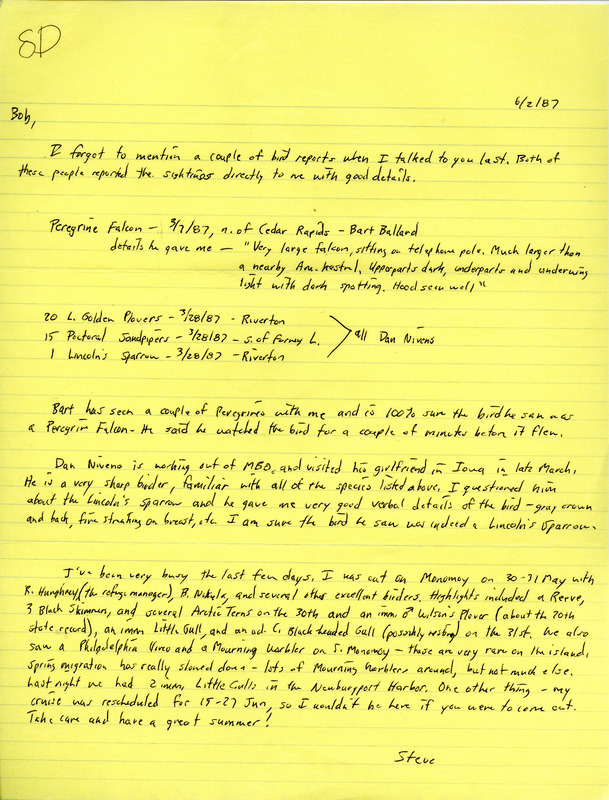 SD
6/2/87
Bob,
I forgot to mention a couple of bird reports when I talked to you last. Both of
these people reported the sightings directly to me with good details.
Peregrine Falcon - 3/7/87, n. of Cedar Rapids - Bart Ballard
details he gave me - "Very large falcon, sitting on telephone pole. Much larger than
a nearby Am. kestrel. Upperparts dark, underparts and underwing
light with dark spotting. Hood seen well"
20 L. Golden Plovers - 3/28/87 - Riverton
15 Pectoral Sandpipers - 3/28/87 - s. of Forney L. all Dan Nivens
1 Lincoln's Sparrow - 3/28/87 - Riverton
Bart has seen a couple of Peregrines with me and is 100% sure the bird he saw was
a Peregrin Falcon - He said he watched the bird for a couple of minutes before it flew.
Dan Nivens is working out of MBO, and visited his girlfriend in Iowa in late March.
He is a very sharp birder, familiar with all of the species listed above. I questioned him
about the Lincoln's Sparrow and he gave me very good verbal details of the bird - gray crown
and back, fine streaking on breast, etc. I am sure the bird he saw was indeed a Lincoln's Sparrow.
I've been very busy the last few days. I was out on Monomoy on 30-31 May with
R. Humphrey (the refuge manager), B. Nikula, and several other excellent birders. Highlights included a Reeve,
3 Black Skimmers, and several Arctic Terns on the 30th and an imm. ♂ Wilson's Plover (about the 20th
state record), an imm Little Gull, and an ad. C. Black-headed Gull (possibly nesting) on the 31st. We also
saw a Philadelphia Vireo and a Mourning Warbler on S. Monomoy - those are very rare on the island.
Spring migration has really slowed down - lots of Mourning Warblers around, but not much else.
Last night we had 2 imm. Little Gulls in the Newburyport Harbor. One other thing - my
cruise was rescheduled for 15-27 Jun, so I wouldn't be here if you were to come out.
Take care and have a great summer!
Steve